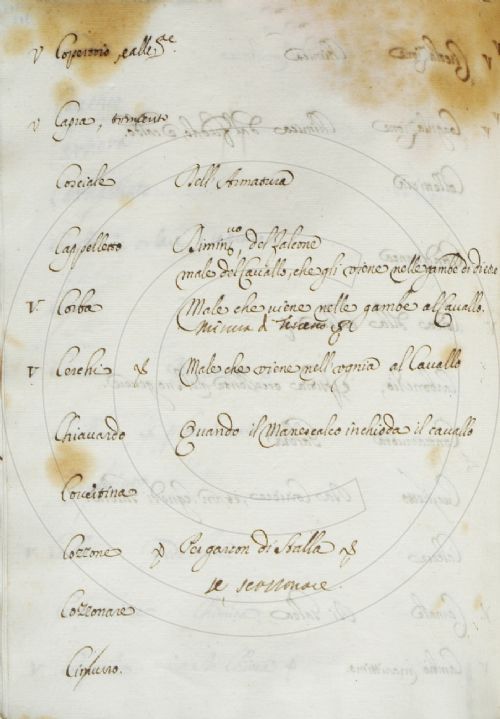 v Coperto, calle
v Capra, tormento
Cosciale Dell'Armatura
Cappelletto Dimin.vo del Falcone
male del Cavallo, che gli viene nelle gambe di dietro
v. Corba Male che viene nelle gambe al Cavallo.
Misura di
v Cerchi Male che viene nell'ognia al Cavallo
Chiavardo Quando il Manescalco inchioda il cavallo
Covertina
Cozzone Per garzon di Stalla
e scozzonare.
Cozzonare
Cimurro.